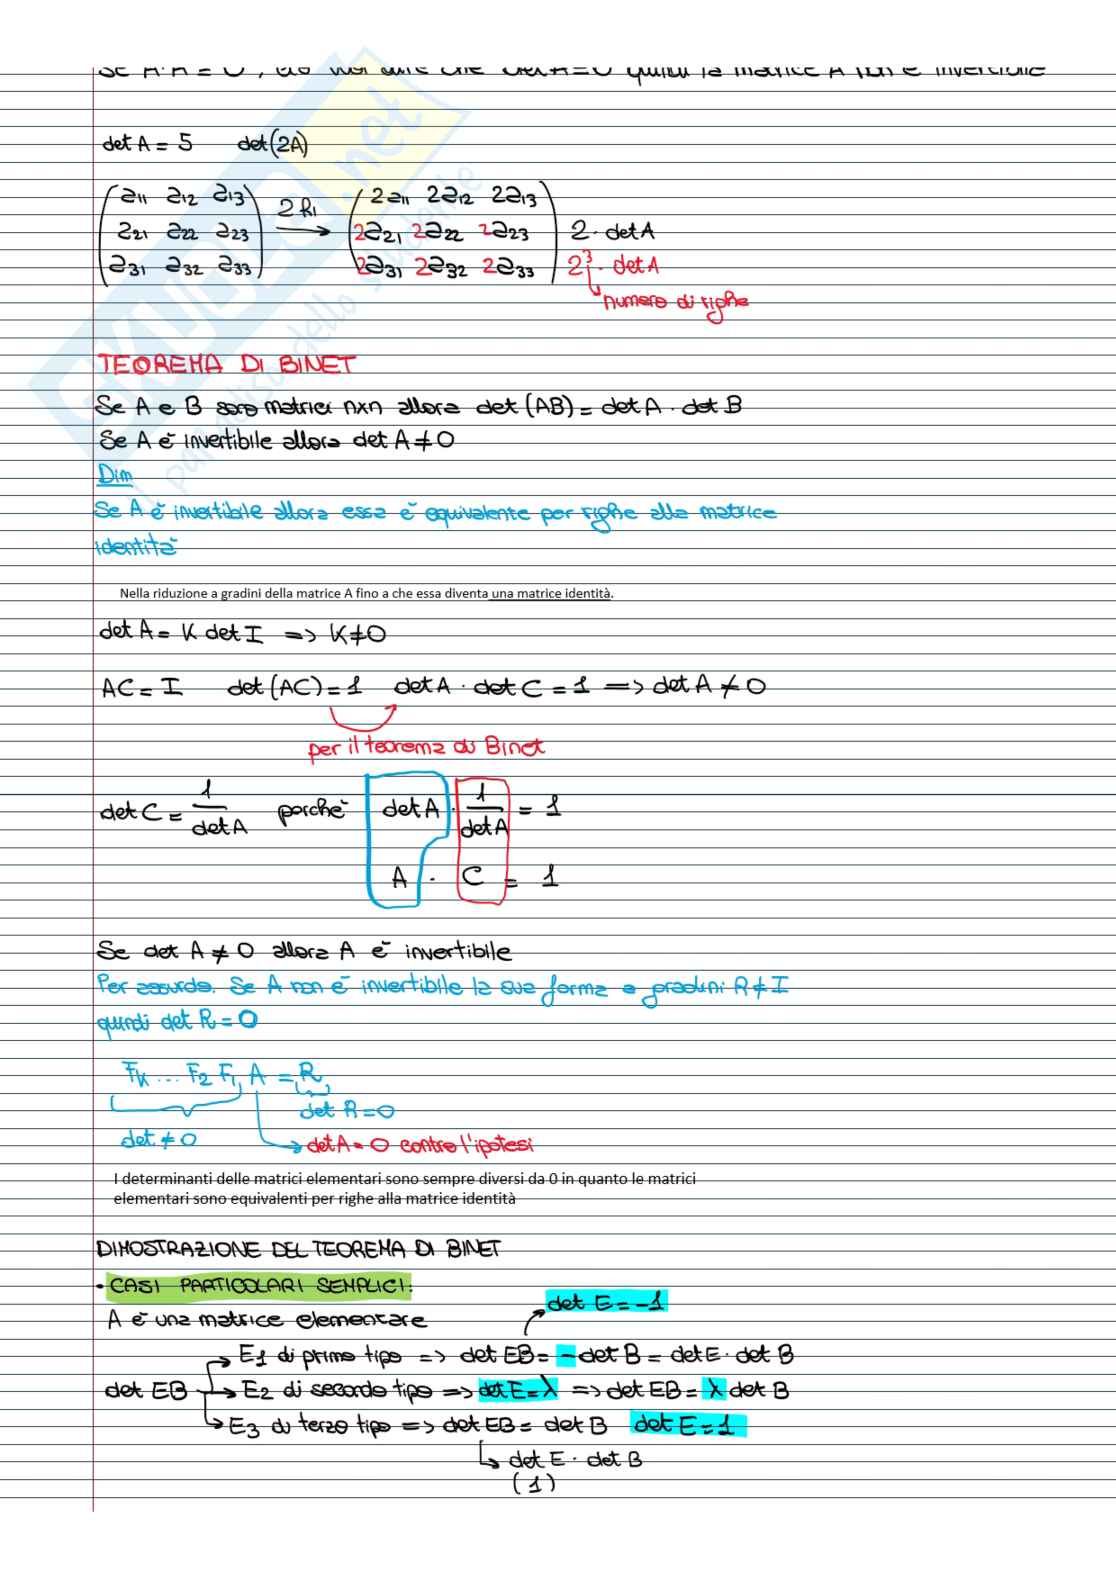 Se A·A = 0, ciò vuol dire che det A=0 quindi la matrice A non è invertibile
det A = 5 det(2A)
a11 a12 a13 2R1 2a11 2a12 2a13
a21 a22 a23 → 2a21 2a22 2a23 2·detA
a31 a32 a33 2a31 2a32 2a33 2³·detA
numero di righe
TEOREMA DI BINET
Se A e B sono matrici nxn allora det (AB)= detA · det B
Se A è invertibile allora det A≠0
Dim
Se A è invertibile allora essa è equivalente per righe alla matrice
identità
Nella riduzione a gradini della matrice A fino a che essa diventa una matrice identità.
det A = K det I => K≠0
AC = I det(AC)=1 detA · det C = 1 => det A ≠ 0
per il teorema di Binet
det C = 1/detA perchè detA · 1/detA = 1
A · C = 1
Se det A ≠ 0 allora A è invertibile
Per assurdo. Se A non è invertibile la sua forma a gradini R≠I
quindi det R = 0
Fk ... F2 F1 A = R
det R=0
det ≠ 0 → detA = 0 contro l'ipotesi
I determinanti delle matrici elementari sono sempre diversi da 0 in quanto le matrici
elementari sono equivalenti per righe alla matrice identità
DIMOSTRAZIONE DEL TEOREMA DI BINET
• CASI PARTICOLARI SEMPLICI:
det E = -1
A è una matrice elementare
E1 di primo tipo => det EB= - det B = detE · det B
det EB → E2 di secondo tipo => det E=λ => det EB= λ det B
E3 di terzo tipo => det EB = det B det E = 1
det E · det B
(1)
SKUOLA.net
il paradiso dello studente